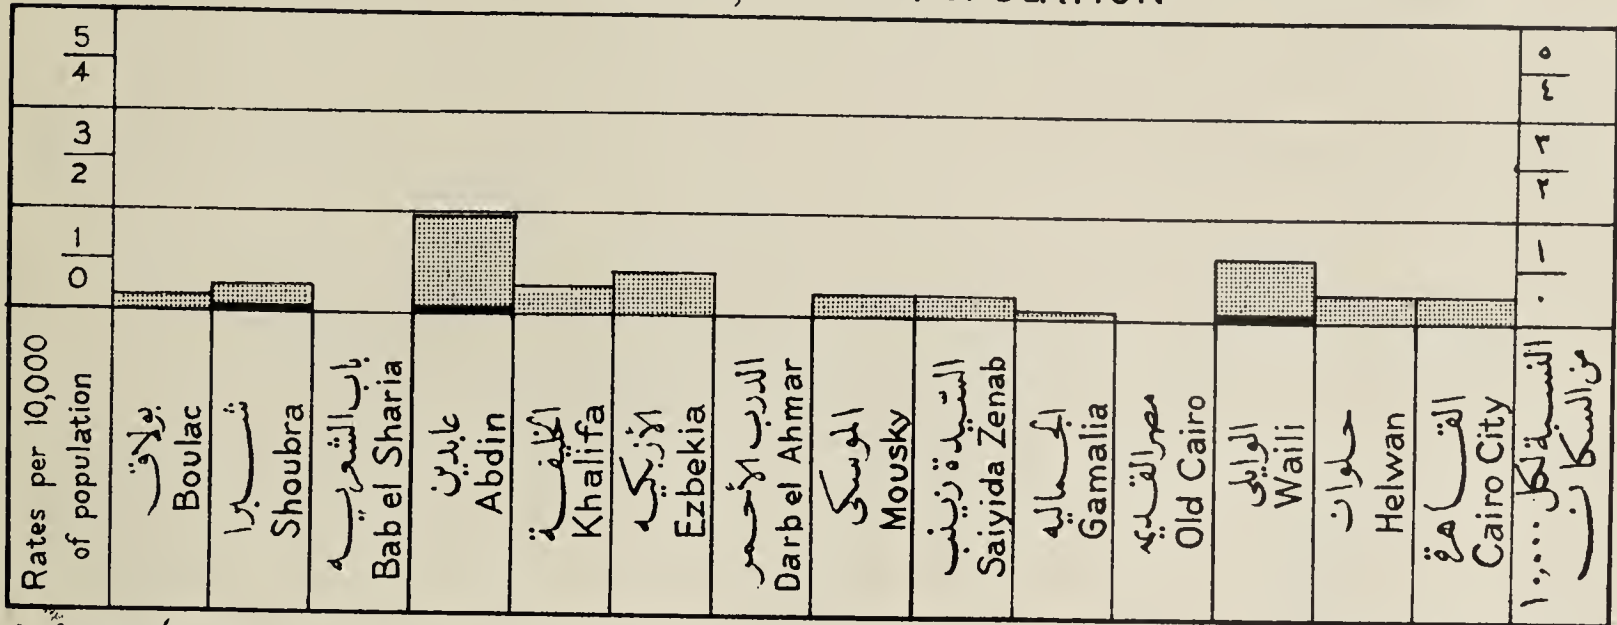 5
4
3
2
1
0
Rates per 10,000
of population
بولاق
Boulac
شبرا
Shoubra
باب الشعريه
Bab el Sharia
عابدين
Abdin
الخليفة
Khalifa
الأزبكيه
Ezbekia
الدرب الأحمر
Darb el Ahmar
الموسكى
Mousky
السيدة زينب
Saiyida Zenab
الجماليه
Gamalia
مصر القديمه
Old Cairo
الوايلى
Waili
حلوان
Helwan
القاهرة
Cairo City
٥
٤
٣
٢
١
٠
النسبة لكل ١٠,٠٠٠
من السكان